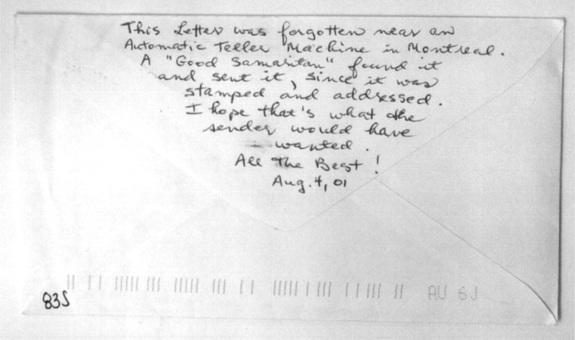 This Letter was forgotten near an
Automatic Teller Machine in Montreal.
A "Good Samaritan" found it
and sent it, since it was
stamped and addressed.
I hope that's what the
sender would have
wanted.
All The Best!
Aug. 4, 01
AU 6J
83S